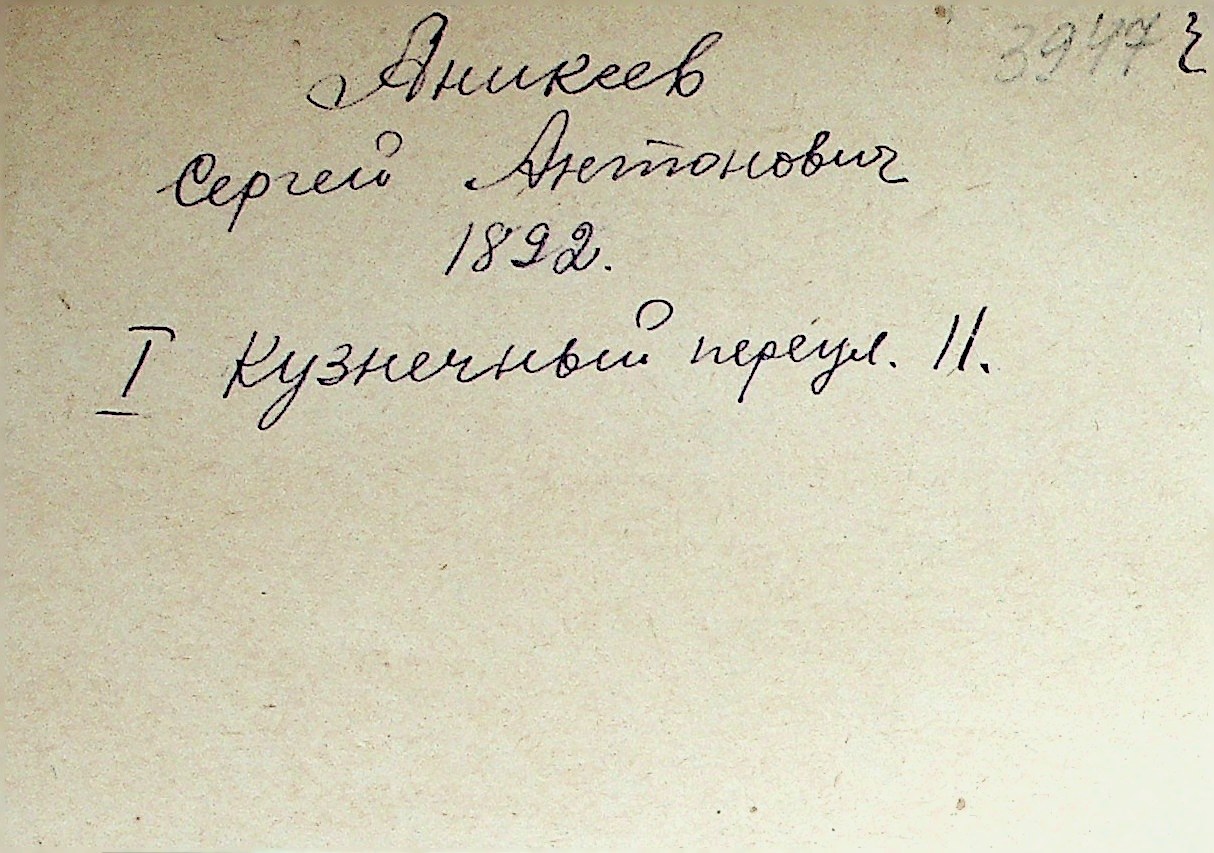 3947
Аникеев
Сергей Антонович
1892.
I Кузнечный переул. 11.